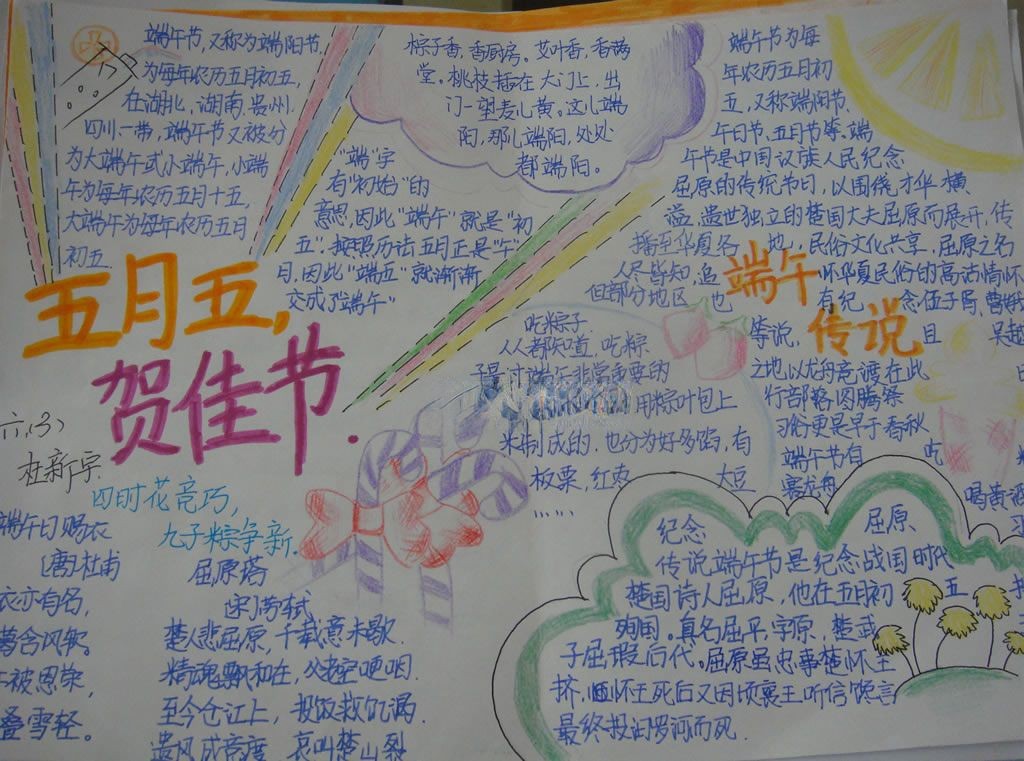 端午节,又称为端阳节,
为每年农历五月初五,
在湖北,湖南.贵州.
四川一带,端午节又被分
为大端午或小端午,小端
午为每年农历五月十五,
大端午为每年农历五月
初五
粽子香,香厨房。艾叶香,香满
堂。桃枝插在大门上,出
门一望麦儿黄。这儿端
阳,那儿端阳,处处
都端阳。
"端"字
有"初始"的
意思,因此"端午"就是"初
五".按照历法五月正是"午"
月,因此"端五"就渐渐
变成了"端午"
端午节为每
年农历五月初
五,又称端阳节.
午日节.五月节等.端
午节是中国汉族人民纪念
屈原的传统节日,以围绕,才华横
溢.遗世独立的楚国大夫屈原而展开,传
播至华夏各地,民俗文化共享.屈原之名
人尽皆知,追怀华夏民俗的高洁情怀
但部分地区也有纪念伍子胥,曹娥
等说,且吴越
之地,以龙舟竞渡在此
行部落图腾祭
习俗更是早于春秋
端午节有吃
赛龙舟
喝黄酒
习
端午
传说
五月五,
贺佳节.
六.(3)
杜新宇.
吃粽子.
人人都知道,吃粽
子是过端午非常重要的
用粽叶包上
米制成的.也分为好多馅,有
板栗,红枣大豆
......
四时花竞巧,
九子粽争新.
端午日赐衣
(唐)杜甫
衣亦有名,
葛含风软。
被恩荣,
叠雪轻。
屈原塔
(宋)苏轼
楚人悲屈原,千载意未歇.
精魂飘何在,父老空哽咽.
至今仓江上,投饭救饥渴.
遗风成竞度,哀叫楚山裂
纪念屈原
传说端午节是纪念战国时代
楚国诗人屈原,他在五月初五
殉国。真名屈平.字原,楚武
子屈瑕后代.屈原虽忠事楚怀王
挤,怀王死后又因顷襄王听信馋言
最终投汨罗河而死.